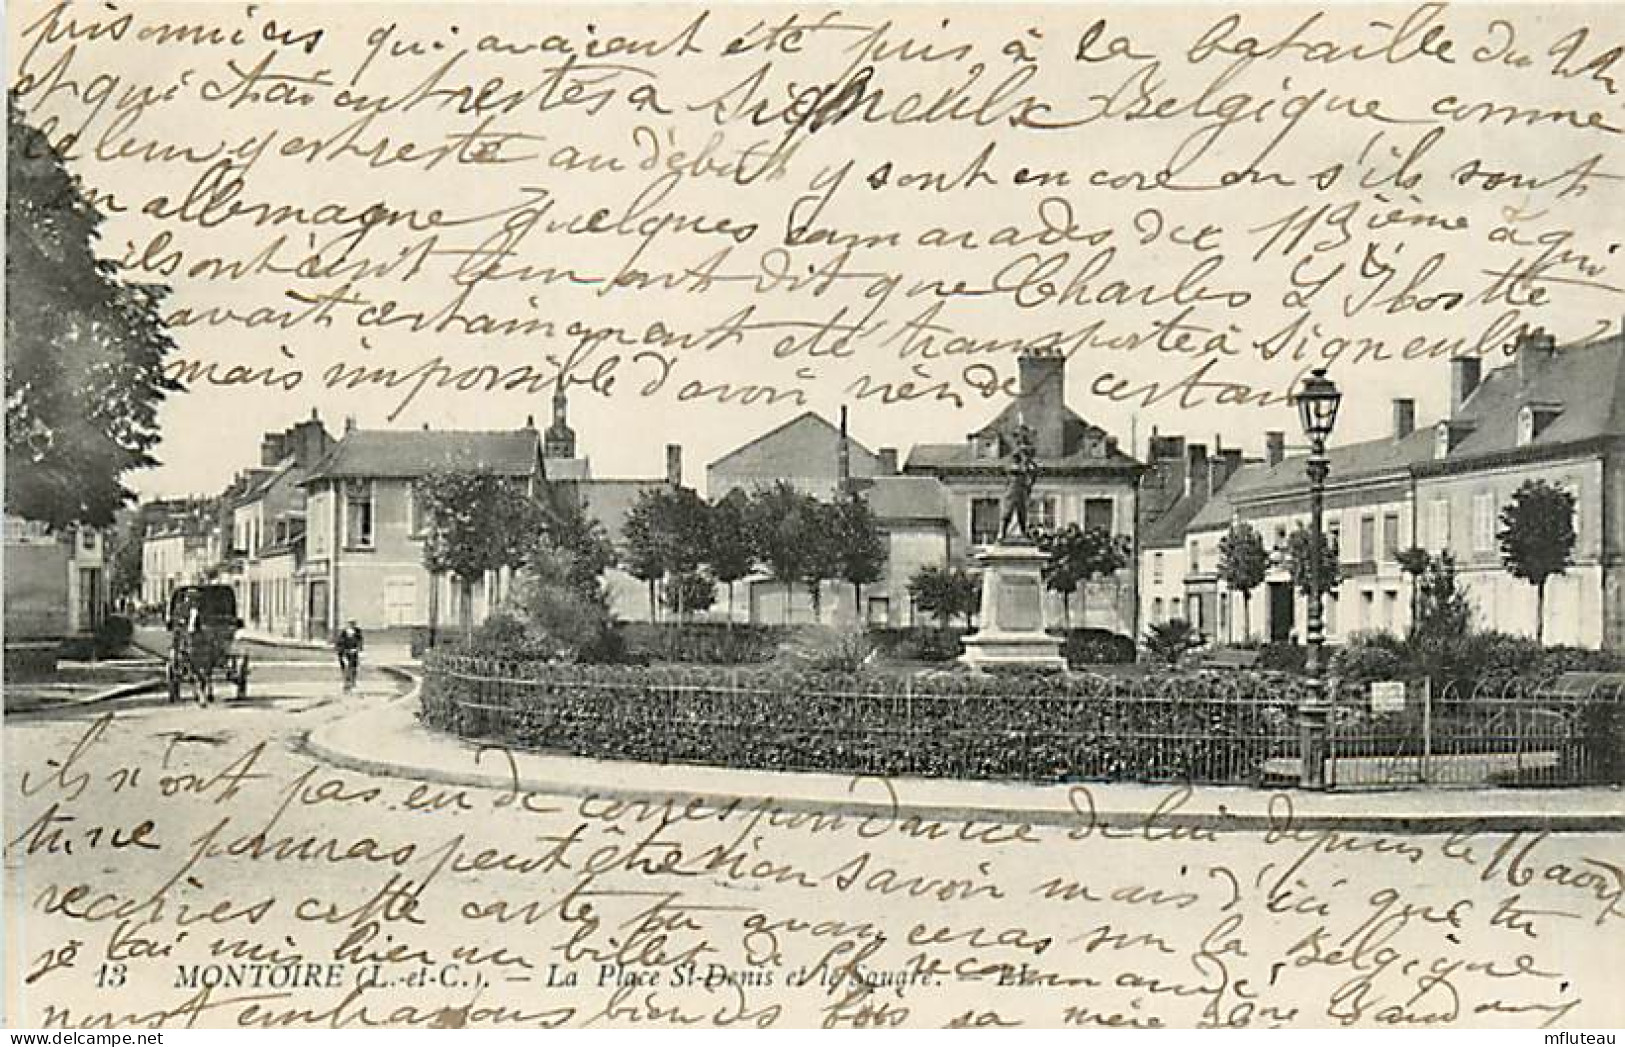 prisonniers qui avaient été pris à la bataille du 22
et qui étaient restés à Signeulx Belgique comme
le leur y est resté au début y sont encore ou s'ils sont
en allemagne quelques camarades du 113ième à qui
ils ont écrit leur ont dit que Charles L'Hostte
avait certainement été transporté à Signeulx
mais impossible d'avoir rien de certain
ils n'ont pas eu de correspondance de lui depuis le 16 août
tu ne pourras peut être rien savoir mais d'ici que tu
recoives cette carte tu avanceras sur la Belgique
je t'ai mis hier un billet de
13 MONTOIRE (L.-et-C.). — La Place St-Denis et le Square. —
nous t'embrassons bien des fois sa mère
mfluteau
www.delcampe.net